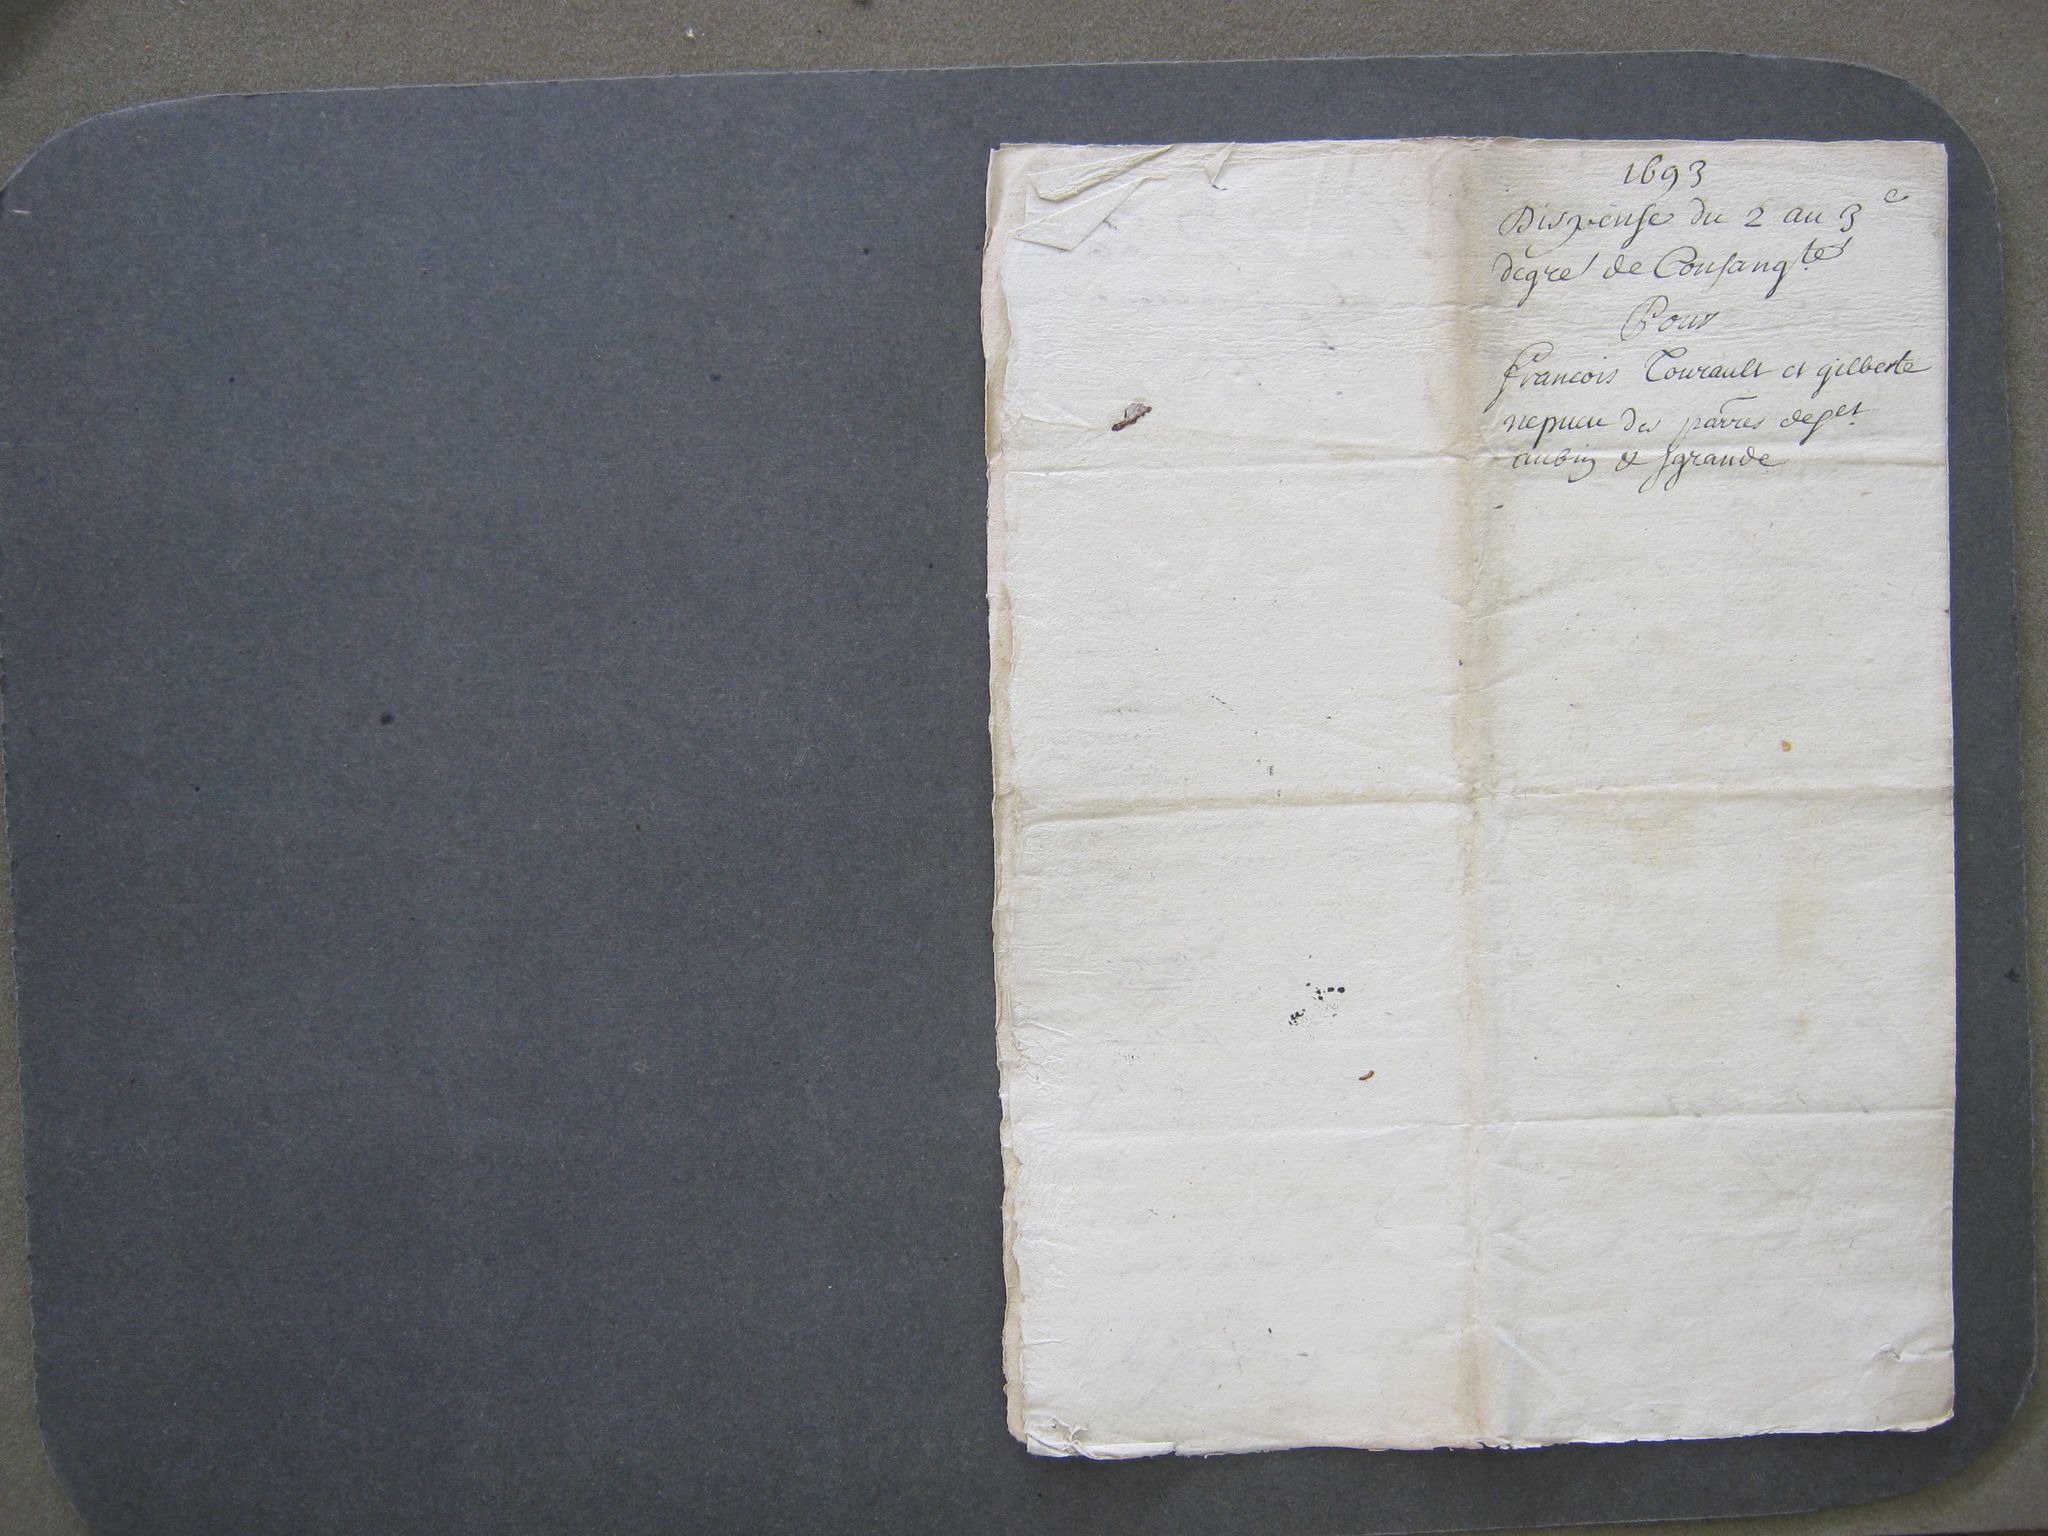 1693
Dispense du 2 au 3e
degré de Consangtés
Pour
francois Tourault et gilberte
nepueu des parres de st
aubin & sgrande